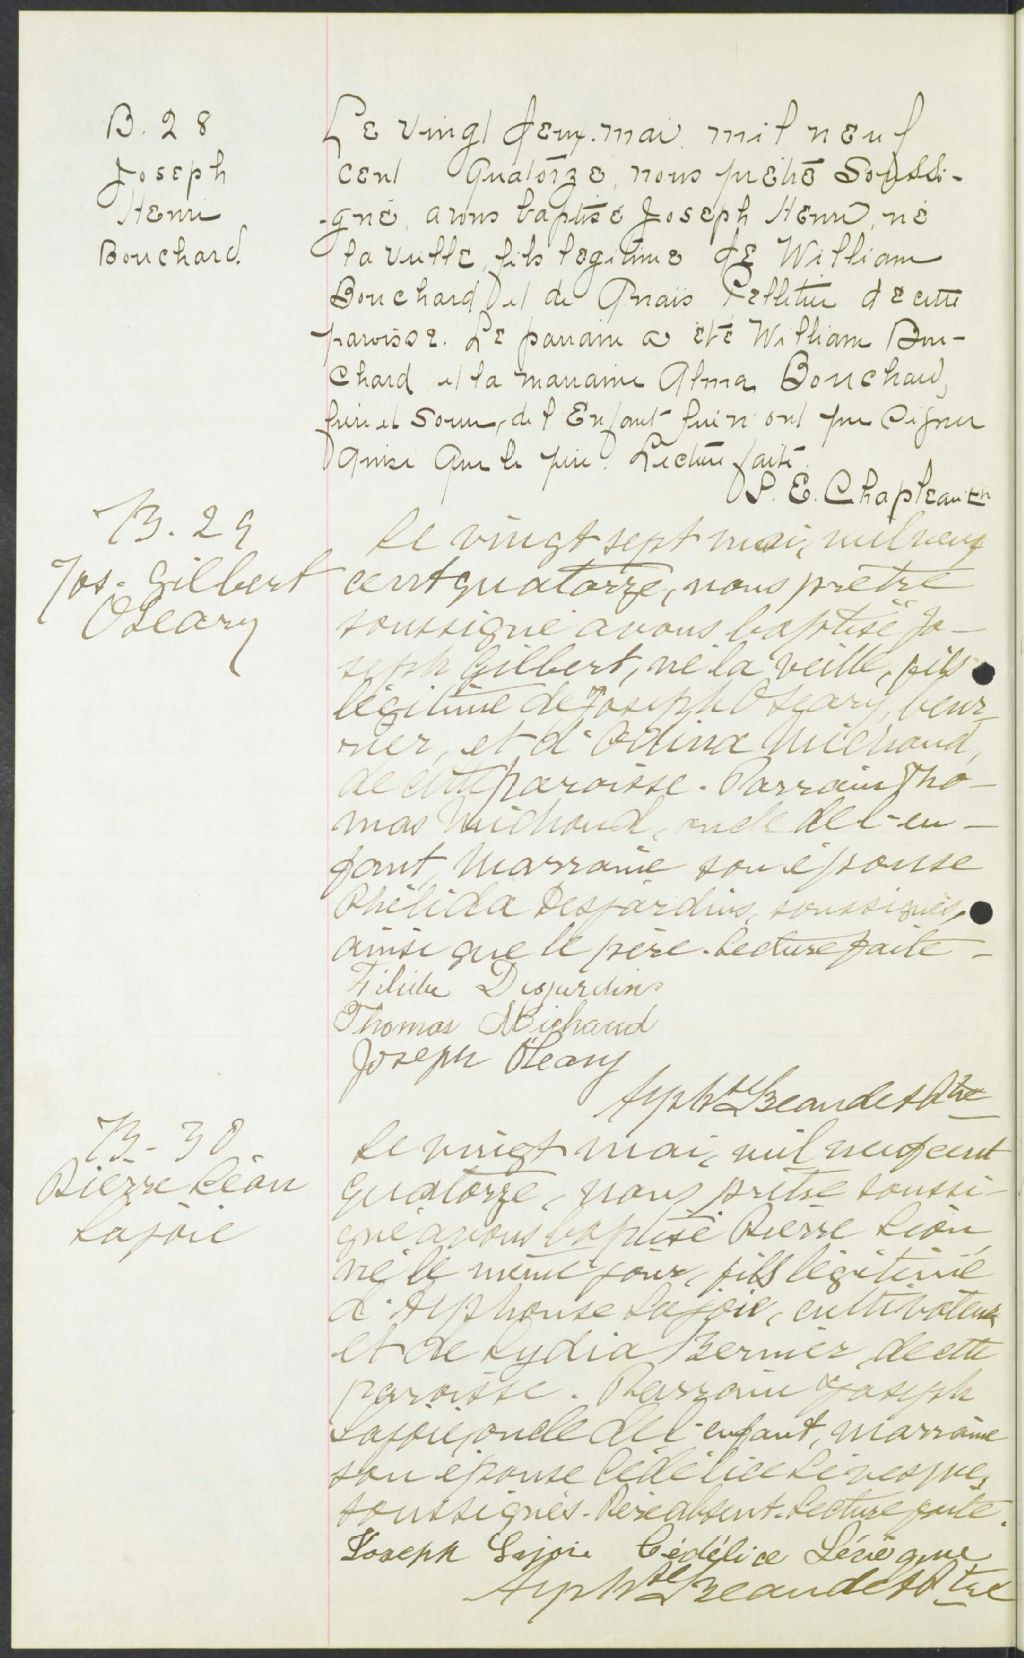 B. 28
Joseph
Henri
Bouchard
Le vingt deux mai mil neuf
cent quatorze, nous prêtre Soussi-
-gné, avons baptisé Joseph Henri, né
la veille, fils légitime de William
Bouchard et de Anaïs Pelletier de cette
paroisse. Le parrain a été William Bou-
chard et la marraine Alma Bouchard,
frère et Soeur, de l'Enfant qui n'ont pu signer
Ainsi que le père. Lecture faite.
B. 29
Jos. Gilbert
O'Leary
Le vingt sept mai, mil neuf
cent quatorze, nous prêtre
soussigné avons baptisé Jo-
seph Gilbert, né la veille, fils
légitime de Joseph O'Leary, beur-
rier, et d'Odina Michaud,
de cette paroisse. Parrain Tho-
mas Michaud, oncle de l'en-
fant, marraine son épouse
Phélida Desjardins, soussignés,
ainsi que le père. Lecture faite -
Desjardins
Thomas Michaud
Joseph O'Leary
Alphse Beaudet Ptre
B. 30
Pierre Léon
Lajoie
Le vingt mai, mil neuf cent
quatorze, nous prêtre soussi-
gné avons baptisé Pierre Léon,
né le même jour, fils légitime
d'Alphonse Lajoie, cultivateur
et de Lydia Bernier, de cette
paroisse. Parrain Joseph
Lajoie, oncle de l'enfant, marraine
son épouse Cédélice Lévesque,
soussignés. Père absent. Lecture faite.
Joseph Lajoie Cédélice Lévêque
Alphse Beaudet Ptre